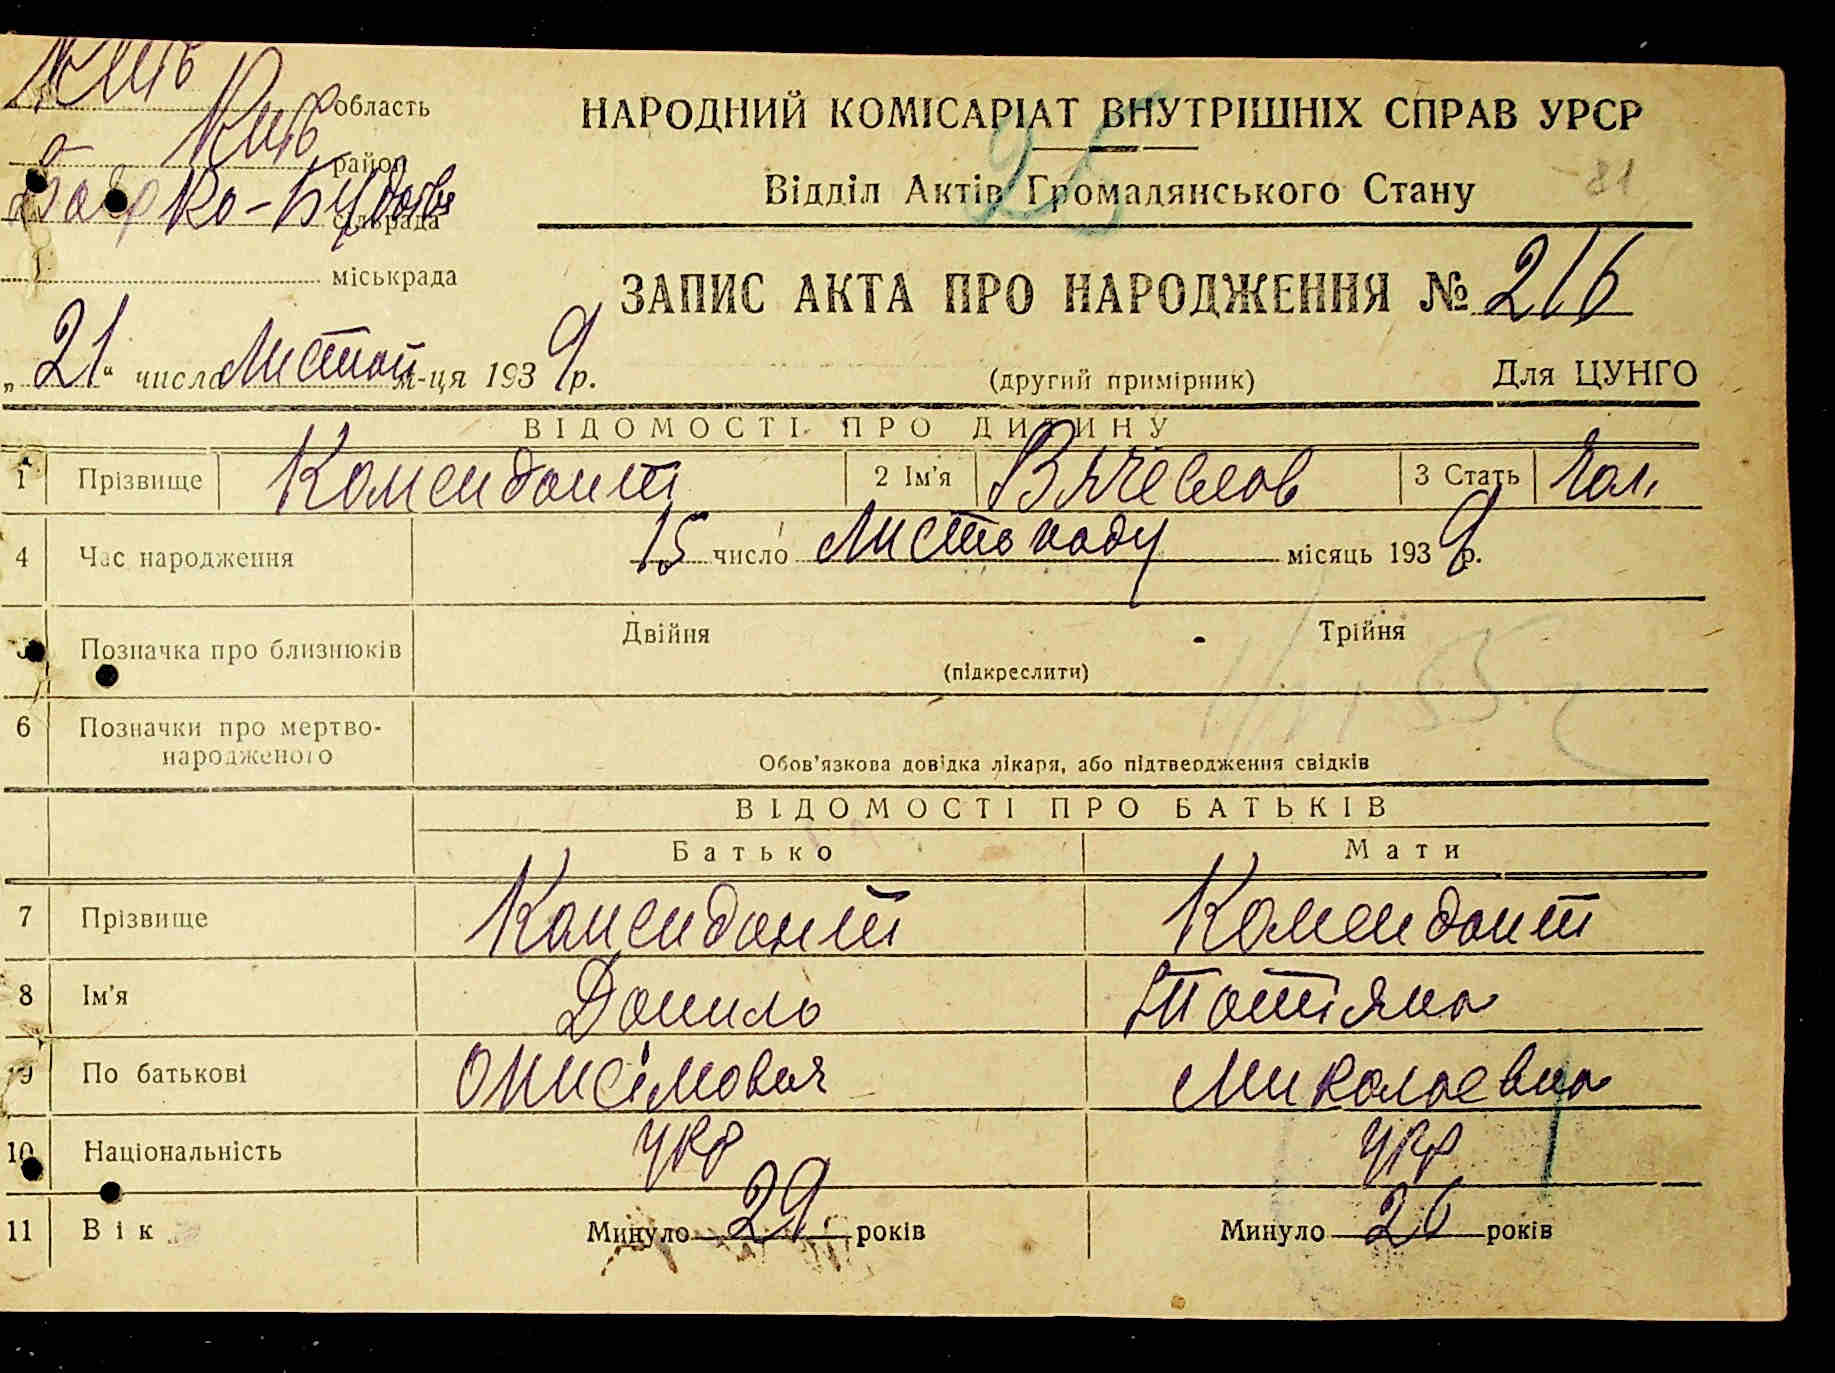 Київ область
Київ район
сільрада
міськрада
НАРОДНИЙ КОМІСАРІАТ ВНУТРІШНІХ СПРАВ УРСР
25
Відділ Актів Громадянського Стану
81
ЗАПИС АКТА ПРО НАРОДЖЕННЯ № 216
„21“ числа Листоп м-ця 1939 р.
(другий примірник) Для ЦУНГО
ВІДОМОСТІ ПРО ДИТИНУ
1 Прізвище Комендант 2 Ім'я Вячеслав 3 Стать Чол.
4 Час народження 15 число Листопаду місяць 1939 р.
5 Позначка про близнюків Двійня Трійня
(підкреслити)
6 Позначки про мертво-
народженого
Обов'язкова довідка лікаря, або підтвердження свідків
ВІДОМОСТІ ПРО БАТЬКІВ
Батько Мати
7 Прізвище Комендант Комендант
8 Ім'я Данило Татіяна
9 По батькові Онисімович Миколаевна
10 Національність укр укр
11 Вік Минуло 29 років Минуло 26 років